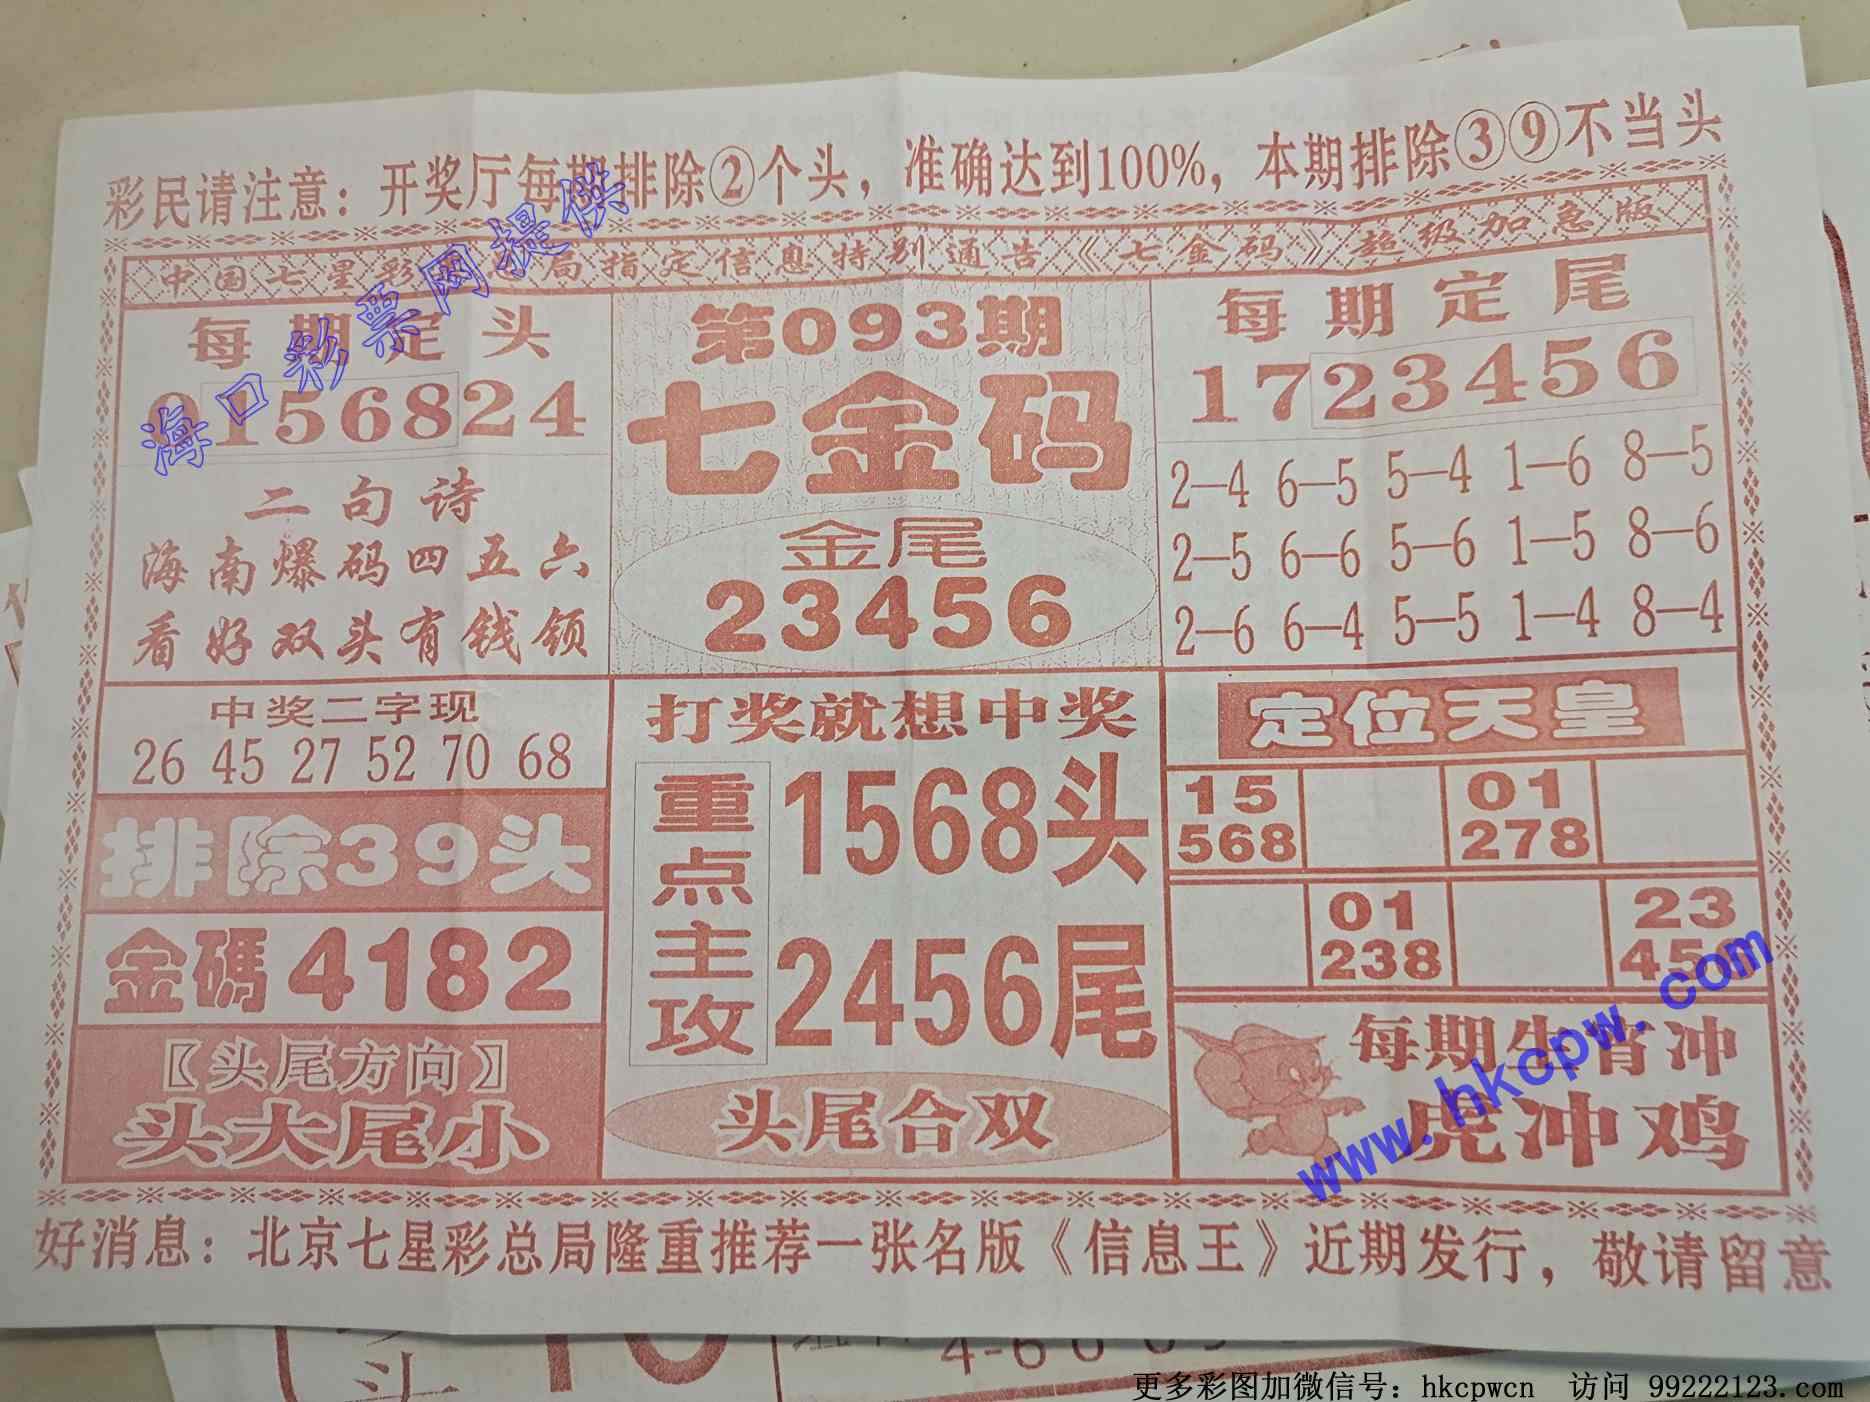 彩民请注意：开奖厅每期排除②个头，准确达到100%，本期排除③⑨不当头
中国七星彩 局指定信息特别通告《七金码》超级加急版
每期定头
0156824
二句诗
海南爆码四五六
看好双头有钱领
第093期
七金码
金尾
23456
每期定尾
1723456
2—4 6—5 5—4 1—6 8—5
2—5 6—6 5—6 1—5 8—6
2—6 6—4 5—5 1—4 8—4
中奖二字现
26 45 27 52 70 68
排除39头
金碼4182
〖头尾方向〗
头大尾小
打奖就想中奖
重点主攻
1568头
2456尾
头尾合双
定位天皇
15 01
568 278
01 23
238 45
每期生肖冲
虎冲鸡
好消息：北京七星彩总局隆重推荐一张名版《信息王》近期发行，敬请留意
海口彩票网提供
www.hkcpw.com
头
10
4-6
更多彩图加微信号：hkcpwcn 访问 99222123.com